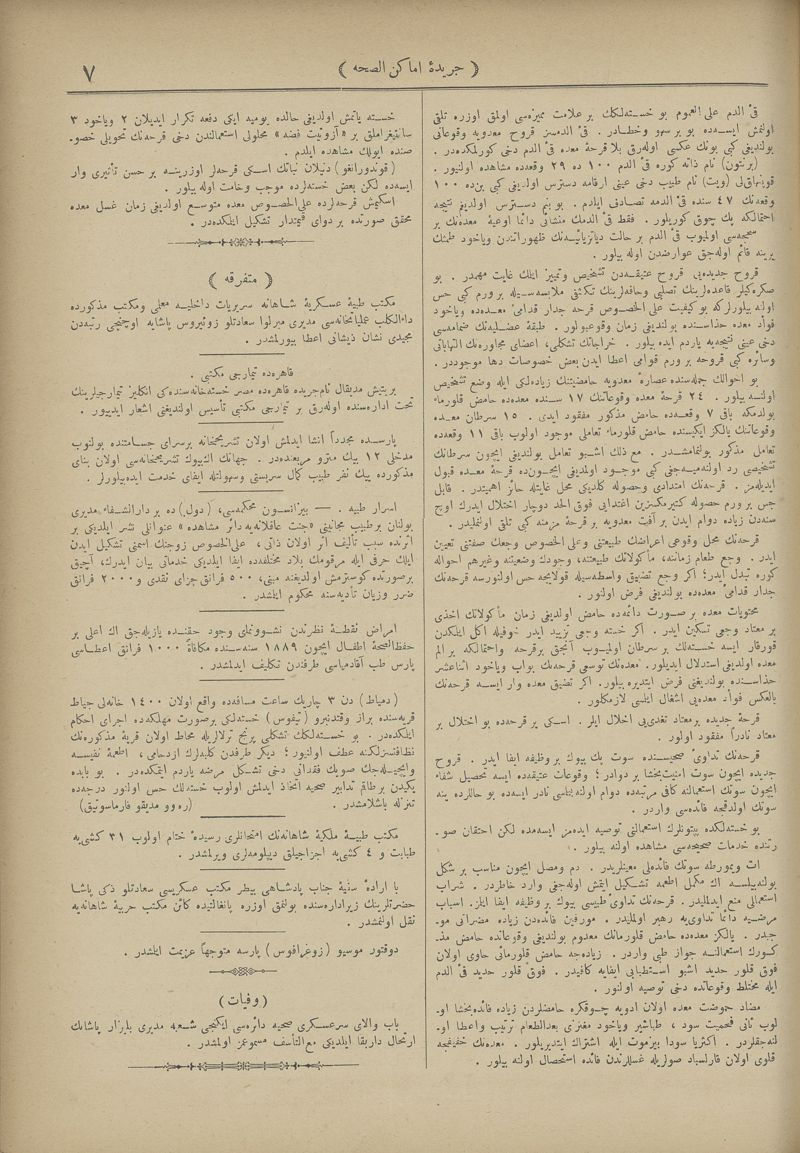 ﴿ جریدهٔ اماکن الصحه ﴾
٧
قئ الدم علی العموم بو خسته‌لکک بر علامت ممیزه‌سی اولمق اوزره تلقی
اولنمش ایسه‌ده بو بر سهو وخطادر . قئ الدمسز قروح معدویه وقوعاتی
بولندیغی کبی بونک عکسی اوله‌رق بلا قرحهٔ معده قئ الدم دخی کورلمکده‌در .
(برنتون) نام ذاته کوره قئ الدم ١٠٠ ده ٢٩ وقعه‌ده مشاهده اولنیور .
نام طبیب دخی عینی ارقامه دسترس اولدیغی کبی بن‌ده ١٠٠
وقعه‌نک ٤٧ سنده قئ الدمه تصادف ایلدم . بو بنم دسترس اولدیغم نتیجه
احتمالکه پك چوق کوریلور . فقط قئ الدمك منشائی دائما اوعیهٔ معده‌نك بر
اولمیوب قئ الدم بر حالت ظهوراتندن ویاخود طمثك
یرینه قائم اوله‌جق عوارضدن اوله بیلور .
قروح جدیده‌یی قروح عتیقه‌دن تشخیص وتمییز ایتمك غایت مهمدر . بو
صکره‌کیلر قاعده‌لرینك تصلبی وحافه‌لرینك تکثفی ملابسه‌سیله بر ورم کبی حس
اولنه بیلورلرکه بو کیفیت علی الخصوص قرحه جدار قدامیٔ معده‌ده ویاخود
فواد معده حذاسنده بولندیغی زمان وقوعبولور . طبقهٔ عضلیه‌نك ضخامه‌سی
دخی عینی نتیجه‌یه یاردم ایده بیلور . خراجاتك تشکلی، اعضای مجاوره‌نك التهاباتی
وسائره کبی قروحه بر ورم قوامی اعطا ایدن بعض خصوصات دها موجوددر .
بو احوالك جمله‌سنده عصارهٔ معدویه حامضیتنك زیاده‌لکی ایله وضع تشخیص
اولنه بیلور . ٢٤ قرحهٔ معده وقوعاتنك ١٧ سنده معده‌ده حامض قلورماء
بولدمکه باقی ٧ وقعه‌ده حامض مذکور مفقود ایدی . ١٥ سرطان معده
وقوعاتنك یالکز ایکیسنده حامض قلورماء تعاملی موجود اولوب باقی ١١ وقعه‌ده
تعامل مذکور بولنمامشدر . مع ذلك اشبو تعامل بولندیغی ایچون سرطانك
تشخیصی رد اولنه‌میه‌جغی کبی موجود اولمدیغی ایچون‌ده قرحهٔ معده قبول
ایدیله‌مز . قرحه‌نك امتدادی وحصوله کلدیکی محل غایتله حائز اهمیتدر . قابل
جس بر ورم حصوله کتیرمکسزین اغتدایی فوق الحد دوچار اختلال ایدرك اوچ
سنه‌دن زیاده دوام ایدن بر آفت معدویه بر قرحهٔ مزمنه کبی تلقی اولنملیدر .
قرحه‌نك محل وقوعی اعراضك طبیعتنی وعلی الخصوص وجعك صفتنی تعیین
ایدر . وجع طعام زماننه، مأکولاتك طبیعتنه، وجودك وضعیتنه وغیرهم احواله
کوره تبدل ایدر؛ اکر وجع تضییق واسطه‌سیله قولایجه حس اولنورسه قرحه‌نك
جدار قدامیٔ معده‌ده بولندیغی فرض اولنور .
محتویات معده بر صورت دائمه‌ده حامض اولدیغی زمان مأکولاتك اخذی
بر معتاد وجعی تسکین ایدر . اکر خسته وجعی تزیید ایدر خوفیله اکل ایتمکدن
قورقار ایسه خسته‌لك بر سرطان اولمیوب آنجق بر قرحه واحتمالکه بر الم
معده اولدیغی استدلال ایدیلور . معده‌نك توسعی قرحه‌نك بواب ویاخود اثناعشر
حذاسنده بولندیغنی فرض ایتدیره بیلور . اکر تضیق معده وار ایسه قرحه‌نك
بالعکس فواد معده‌یی اشغال ایلسی لازمکلور .
قرحهٔ جدیده بر معتاد تغدی‌یی اخلال ایلر . اسکی بر قرحه‌ده بو اختلال بر
معتاد نادراً مفقود اولور .
قرحه‌نك تداویٔ صحیحسنده سوت پك بیوك بر وظیفه ایفا ایدر . قروح
جدیده ایچون سوت امنیتبخشا بر دوادر؛ وقوعات عتیقه‌ده ایسه تحصیل شفاء
ایچون سوتك استعمالنه کافی مرتبه‌ده دوام اولنه‌بیلمسی نادر ایسه‌ده بو حاللرده ینه
سوتك اولدقجه فائده‌سی واردر .
بو خسته‌لکده پپتونلرك استعمالنی توصیه ایده‌مز ایسه‌مده لکن احتقان صو-
رتنده خدمات صحیحه‌سی مشاهده اولنه بیلور .
ات ویمورطه سوتك فائده‌لی معینلریدر . دم ومصل ایچون مناسب بر شکل
بولنه‌بیلسه اك مکمل اطعمه تشکیل ایتمش اوله‌جغی وارد خاطردر . شراب
استعمالی منع ایدلملیدر . قرحه‌نك تداویٔ طبیسی بیوك بر وظیفه ایفا ایلر. اسباب
مرضیه دائما تداوی‌یه رهبر اولملیدر . مورفین فائده‌دن زیاده مضراتی مو-
جبدر . یالکز معده‌ده حامض قلورماء‌نك معدوم بولندیغی وقوعاتده حامض مذ-
کورك استعمالنه جواز طبی واردر . زیاده‌جه حامض قلورمائی حاوی اولان
فوق قلور حدید اشبو استطبابی ایفایه کافیدر . فوق قلور حدید قئ الدم
ایله مختلط وقوعاتده دخی توصیه اولنور .
مضاد حموضت معده اولان ادویه چوقکره حامضلردن زیاده فائده‌بخشا او-
لوب ثانی فحمیت سود ، طباشیر ویاخود مغنزی بعدالطعام ترتیب واعطا او-
لنه‌جقلردر . اکثریا سودا بیزموت ایله اشتراك ایتدیریلور . معده‌نك خفیفجه
قلوی اولان قارلسباد صولریله غسللرندن فائده استحصال اولنه بیلور .
خسته یاتمش اولدیغی حالده یومیه ایکی دفعه تکرار ایدیلان ٢ ویاخود ٣
سانتیغراملق بر «آزوتیت فضه» محلولی استعمالندن دخی قرحه‌نك تحویلی خصو-
صنده ایولك مشاهده ایلدم .
(قوندورانغو) دنیلان نباتك اسکی قرحه‌لر اوزرینه بر حسن تأثیری وار
ایسه‌ده لکن بعض خسته‌لرده موجب وخامت اوله بیلور .
اسکیمش قرحه‌لرده علی الخصوص معده متوسع اولدیغی زمان غسل معده
محقق صورتده بر دوای قیمتدار تشکیل ایلمکده‌در .
﴿ متفرقه ﴾
مکتب طبیهٔ عسکریهٔ شاهانه سریریات داخلیه معلمی ومکتب مذکورده
داءالکلب عملیاتخانه‌سی مدیری میرلوا سعادتلو زوئیروس پاشایه اوچنجی رتبه‌دن
مجیدی نشان ذیشانی اعطا بیورلمشدر .
قاهره‌ده تیمارجی مکتبی .
بریتیش مدیقال نام جریده قاهره‌ده مصر خسته‌خانه‌سنده‌کی انکلیز تیمارجیلرینك
تحت اداره‌سنده اوله‌رق بر تیمارجی مکتبی تأسیس اولندیغنی اشعار ایدییور .
پارسده مجدداً انشا ایدلمش اولان تشریحخانه برسرای جسامتنده بولنوب
مدخلی ١٢ بیك مترو مربعنده‌در . جهانك اك بیوك تشریحخانه‌سی اولان بنای
مذکورده بیك نفر طبیب کمال سربستی وسهولتله ایفای خدمت ایده‌بیلورلر .
اسرار طبیه . — بیزانسون محکمه‌سی، (دول) ده بر دارالشفاء مدیری
بولنان برطبیب مجانینی «جنت عاقلانه‌یه دائر مشاهده» عنوانلی نشر ایلدیکی بر
اثرنده سبب تألیف اثر اولان ذاتی ، علی الخصوص زوجنك اسمنی تشکیل ایدن
ایلك حرفی ایله مرقومك بلاد مختلفه‌ده ایفا ایلدیکی خدماتی بیان ایدرك، آچیق
برصورتده کوسترمش اولدیغنه مبنی، ٥٠٠ فرانق جزای نقدی و ٢٠٠٠ فرانق
ضرر وزیان تأدیه‌سنه محکوم ایلمشدر .
امراض نقطهٔ نظرندن نشوونمای وجود حقنده یازیله‌جق اك اعلی بر
حفظ الصحهٔ اطفال ایچون ١٨٨٩ سنه‌سنده مکافاةً ١٠٠٠ فرانق اعطاسی
پارس طب آقادمیاسی طرفندن تکلیف ایدلمشدر .
(دمیاط) دن ٣ چاریك ساعت مسافه‌ده واقع اولان ١٤٠٠ خانه‌لی خیاط
قریه‌سنده براز وقتدنبرو (تیفوس) خسته‌لکی برصورت مهلکه‌ده اجرای احکام
ایلمکده‌در . بو خسته‌لکك تشکلی پرنج ترلالریله محاط اولان قریهٔ مذکوره‌نك
نظافتسزلکنه عطف اولنیور؛ دیکر طرفدن کلبه‌لرك ازدحامی ، اطعمهٔ نفیسه
وایچیله‌جك صویك فقدانی دخی تشکل مرضه یاردم ایتمکده‌در . بو بابده
یکیدن بر طاقم تدابیر صحیه اتخاذ ایدلمش اولوب خسته‌لك حس اولنور درجه‌ده
تنزله باشلامشدر . (ره‌وو مدیقو فارماسوتیق)
مکتب طبیهٔ ملکیهٔ شاهانه‌نك امتحانلری رسیدهٔ ختام اولوب ٣١ کشی‌یه
طبابت و ٤ کشی‌یه اجزاجیلق دیپلومه‌لری ویرلمشدر .
با ارادهٔ سنیهٔ جناب پادشاهی بیطر مکتب عسکریسی سعادتلو ذکی پاشا
حضرتلرینك زیر اداره‌سنده بولنمق اوزره پانغالتیده کائن مکتب حربیهٔ شاهانه‌یه
نقل اولنمشدر .
دوقتور موسیو (زوغرافوس) پارسه متوجهاً عزیمت ایلمشدر .
(وفیات)
باب والای سرعسکری صحیه دائره‌سی ایکنجی شعبه مدیری پاشانك
ارتحال داربقا ایلدیکی مع التأسف مسموعمز اولمشدر .